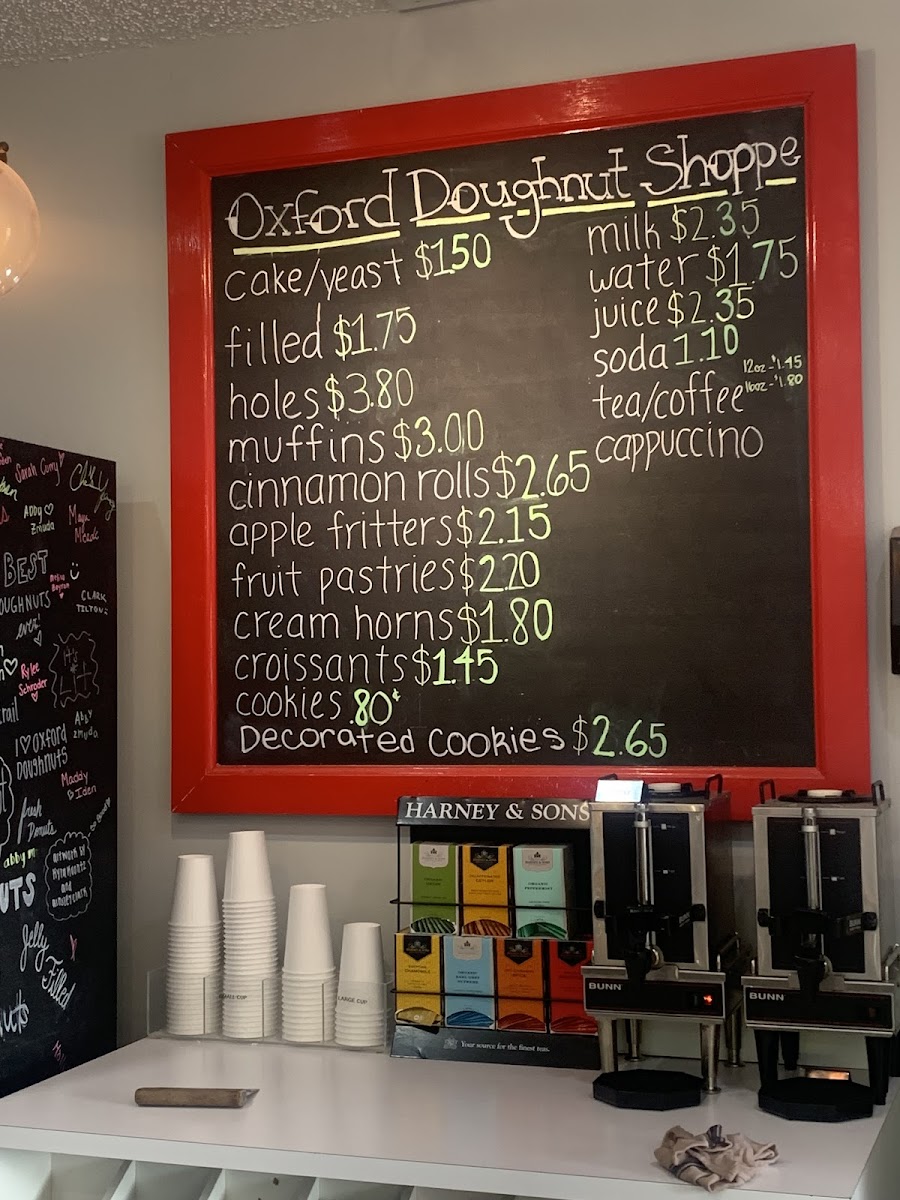 Oxford Doughnut Shoppe
cake/yeast $1.50
filled $1.75
holes $3.80
muffins $3.00
cinnamon rolls $2.65
apple fritters $2.15
fruit pastries $2.20
cream horns $1.80
croissants $1.45
cookies .80¢
Decorated Cookies $2.65
milk $2.35
water $1.75
juice $2.35
soda 1.10
tea/coffee 12oz-$1.45
16oz-$1.80
cappuccino
Sarah
Abby
Zmuda
BEST
OUGHNUTS
ever!
CLARK
Rylee
Schroder
I ♡ Oxford
Doughnuts
Abby
Zmuda
Maddy
Iden
fresh
Donuts
abby m
UTS
Jelly
Filled
HARNEY & SONS
LARGE CUP
BUNN
BUNN
Your source for the finest teas.